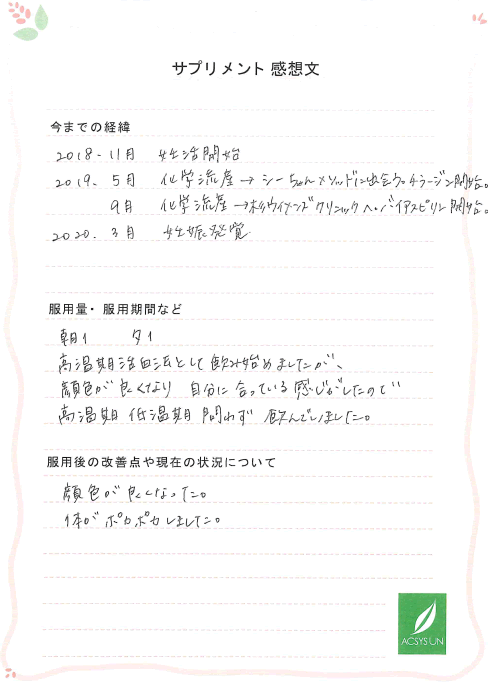 サプリメント 感想文
今までの経緯
2018.11月 妊活開始
2019. 5月 化学流産→シーちゃんメソッドに出会う。チラージン開始。
9月 化学流産→杉ウイメンズクリニックへ。バイアスピリン開始。
2020. 3月 妊娠発覚
服用量・服用期間など
朝1 夕1
高温期活血法として飲み始めましたが、
顔色が良くなり 自分に合っている感じがしたので
高温期 低温期 問わず 飲んでいました。
服用後の改善点や現在の状況について
顔色が良くなった。
体がポカポカしました。
ACSYSUN